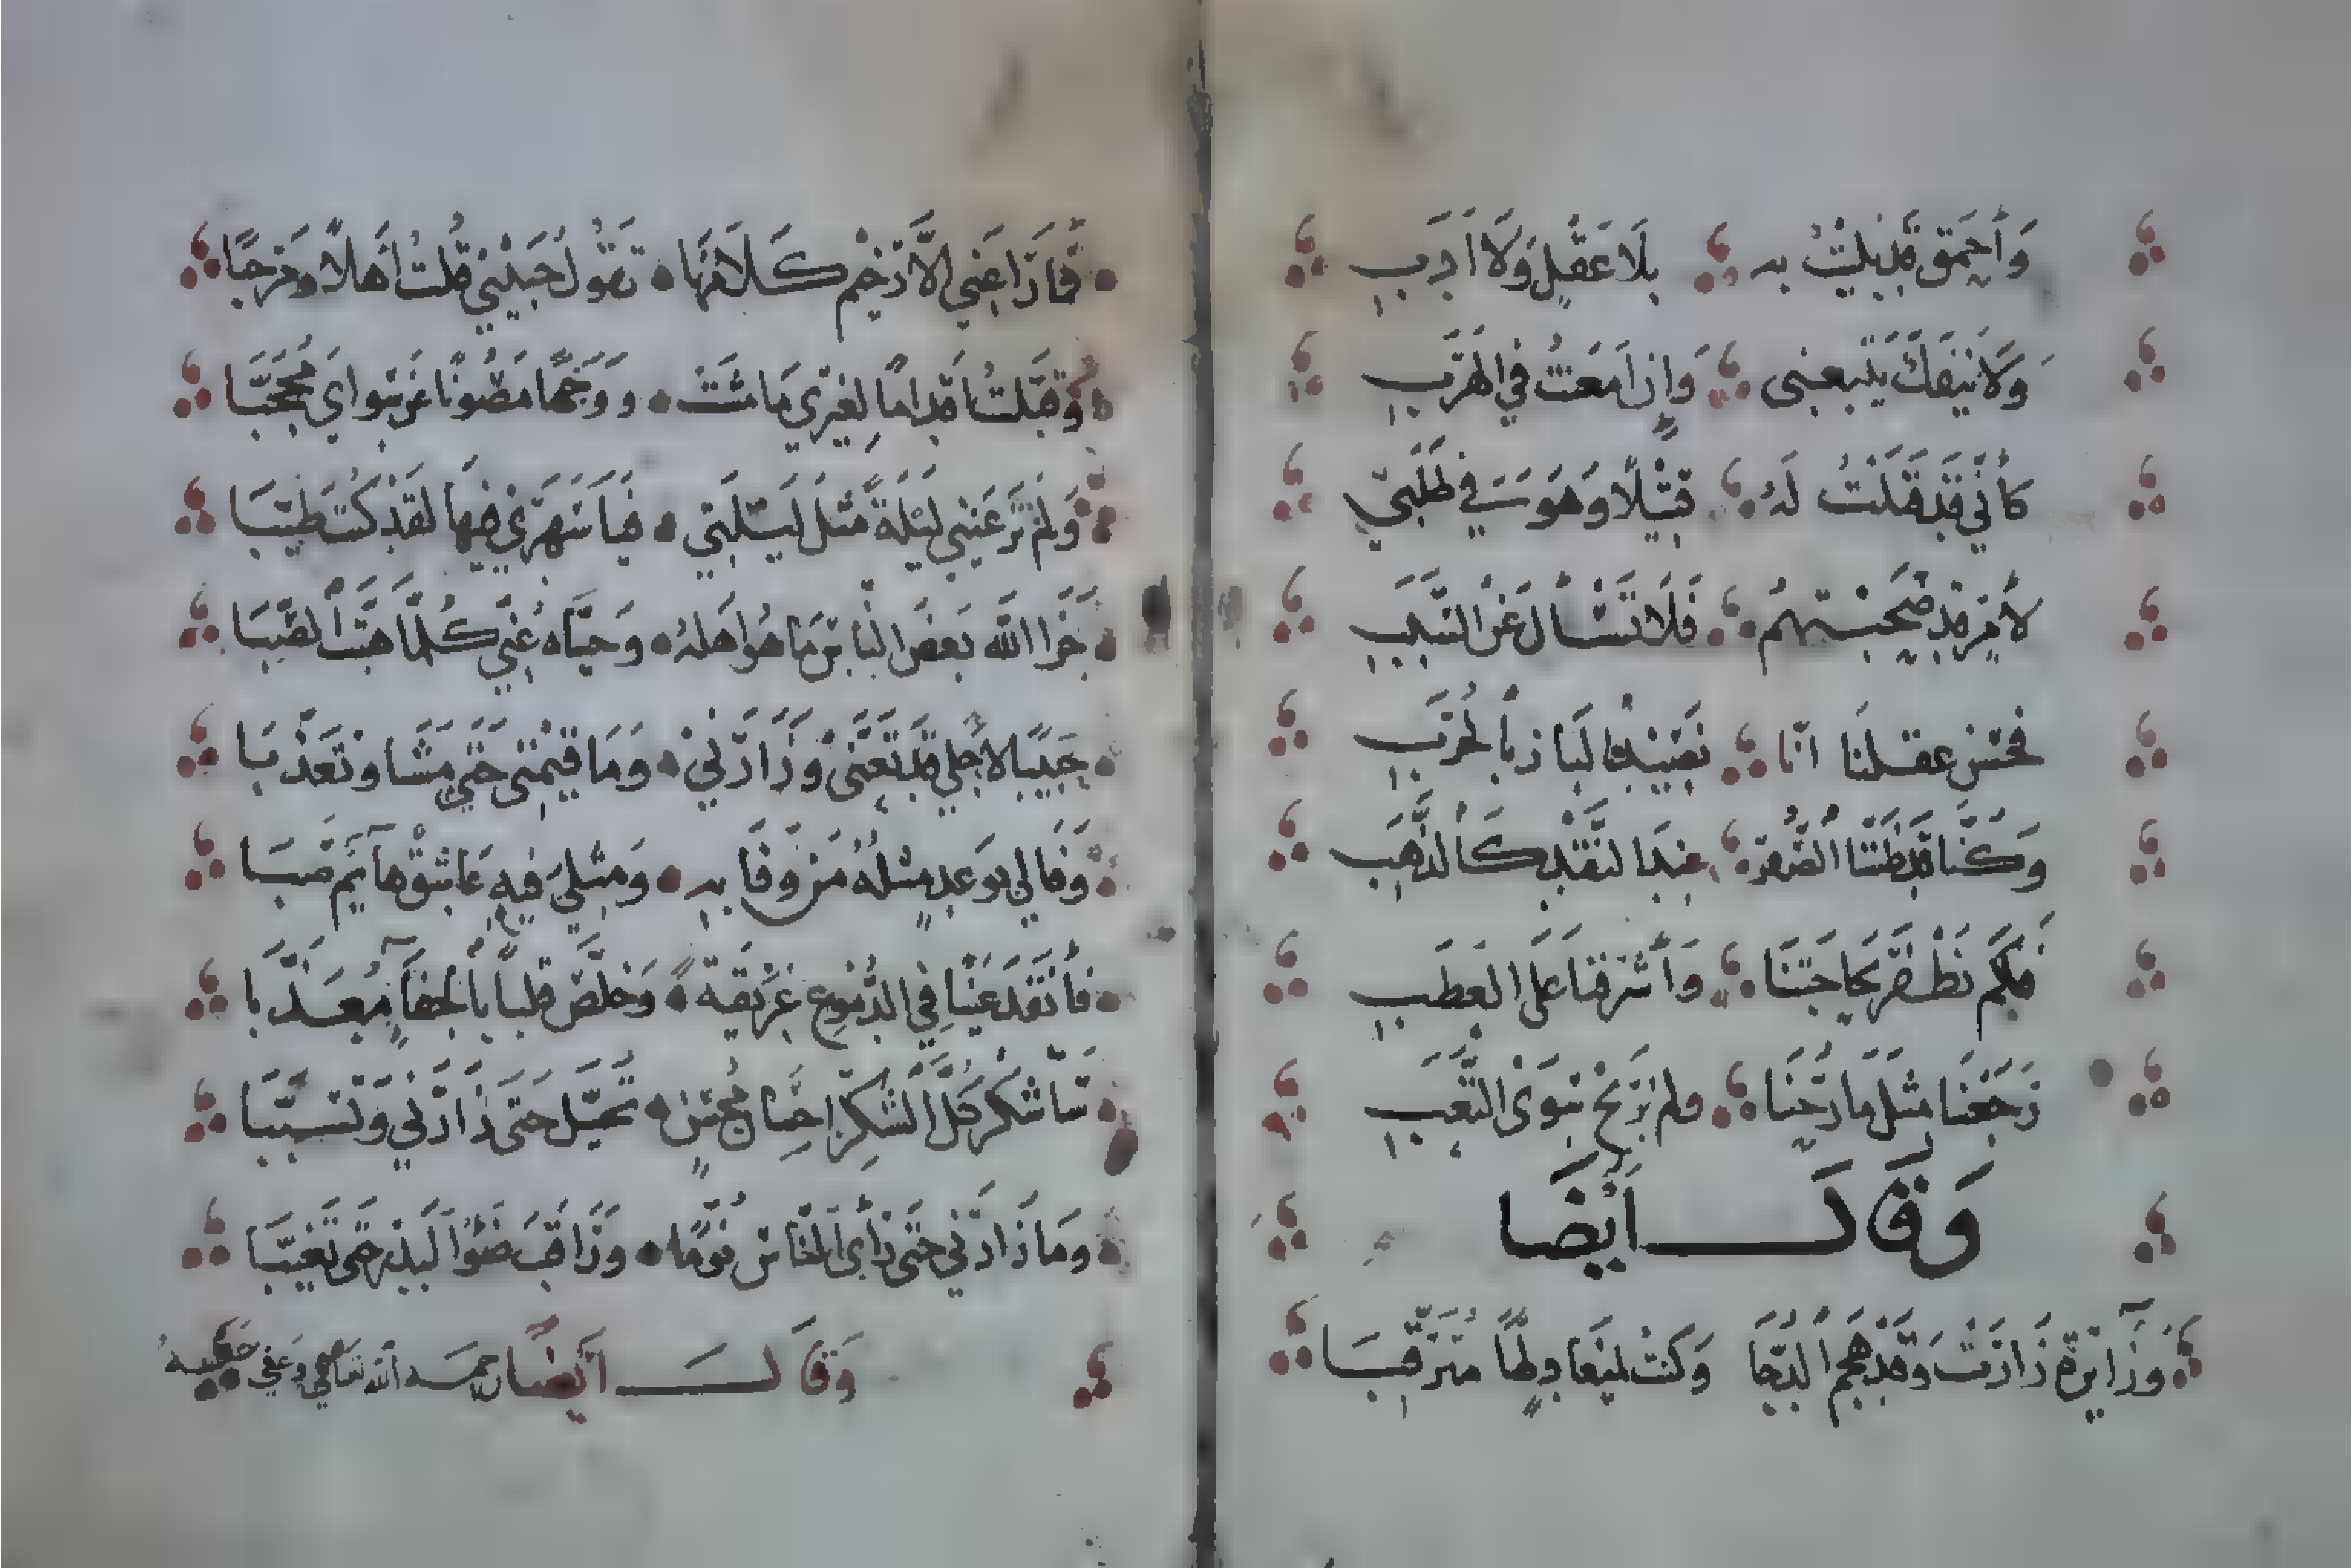 وَأَحمَقٍ قَد بُليتُ به بِلَا عَقْلٍ وَلَا اَدَبِ
وَلَا يَنفَكُّ يَتْبَعنى وَاِن اَمعَنتُ في الهَرَبِ
كأنّي قَد قَتَلْتُ لَهُ قَتِيْلًا وَهوَ في طَلَبي
لأمرٍ قد صَحِبْتهمُ فَلَا تَسْأل عَن السَّبَبِ
فحسن عقلنا انّا نَصيْد البازَ بالخربِ
وَكنّا قد ظَنَنَّا الصُّفرَ عِندَ النّقْدِ كَالذَّهَبِ
فَكَم نَظْفر بحَاجَتنَا وَأَشرفنا على العَطَبِ
رَجَعْنَا مثلَ ما رُحْنَا ولم نَربَحْ سِوَى التّعَبِ
وَقَالَ أَيْضًا
وَزَآئرةٍ زَارَتْ وَقَدْ هَجَمَ الدُّجَا وَكنتُ لميعادٍ لهَا مترَقّبَا
فمَا رَاعني الَّا رَخيْم كَلَامهَا تقُولُ حَبيْبي قُلتُ أَهلًا وَمَرحبًا
وَقَبّلتُ اَقدامًا لِغيري مَا مَشَتْ وَوَجهًا مَصُونًا عَن سِوايَ مُحَجّبَا
وَلم تَرَ عَيني لَيْلَةً مثلَ لَيْلَتي فيَا سَهَري فيهَا لَقَد كنتَ طَيّبَا
جَزا اللّه بَعضَ الناسِ مَا هُوَ اَهلهُ وَحيّاه عَنّي كُلّمَا هَبّت الصَّبَا
حَبيبًا لاجلي قد تَعَنَّى وَزَارَني وَمَا قيمتى حَتى مَشَا وتعَذّبَا
وَفَا لي بوَعدٍ مثلهُ مَن وَفَا به وَمثلي فيهِ عاشقٌ هآئم صَبَا
فأنقَذ عَينًا في الدُّموعِ غَرِيقةً وَخلّص قلبًا بالجفآءِ مُعَذّبَا
سَأشكُر كُلَّ الشكر احسَان محسنٍ تحَيّل حَتى زَارَني وَتسَبّبَا
وَمَا زَارَني حَتى رَأَى النّاسَ نُوّمًا وَرَاقبَ ضَوْءَ البَدْرِ حَتى تَغيّبَا
وَقَالَ أَيْضًا رحمه الله تعالى وعفي عنه